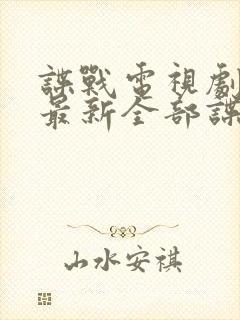 諜戰電視劇
最新全部諜
山水安祺